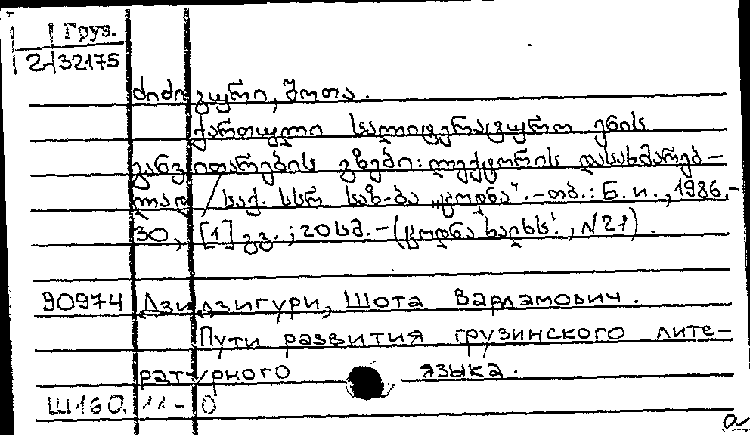 Груз.
2-32175
ძიძიგური, შოთა.
ქართული სალიტერატურო ენის
განვითარების გზები: ლექტორის დასახმარებ-
ლად / საქ. სსრ საზ-ბა „ცოდნა“. - თბ.: Б. и., 1986.-
30, [1] გვ.; 20სმ. - (ცოდნა ხალხს!, N21).
90974 Дзидзигури, Шота Варламович.
Пути развития грузинского лите-
ратурного языка.
Ш160.11-0